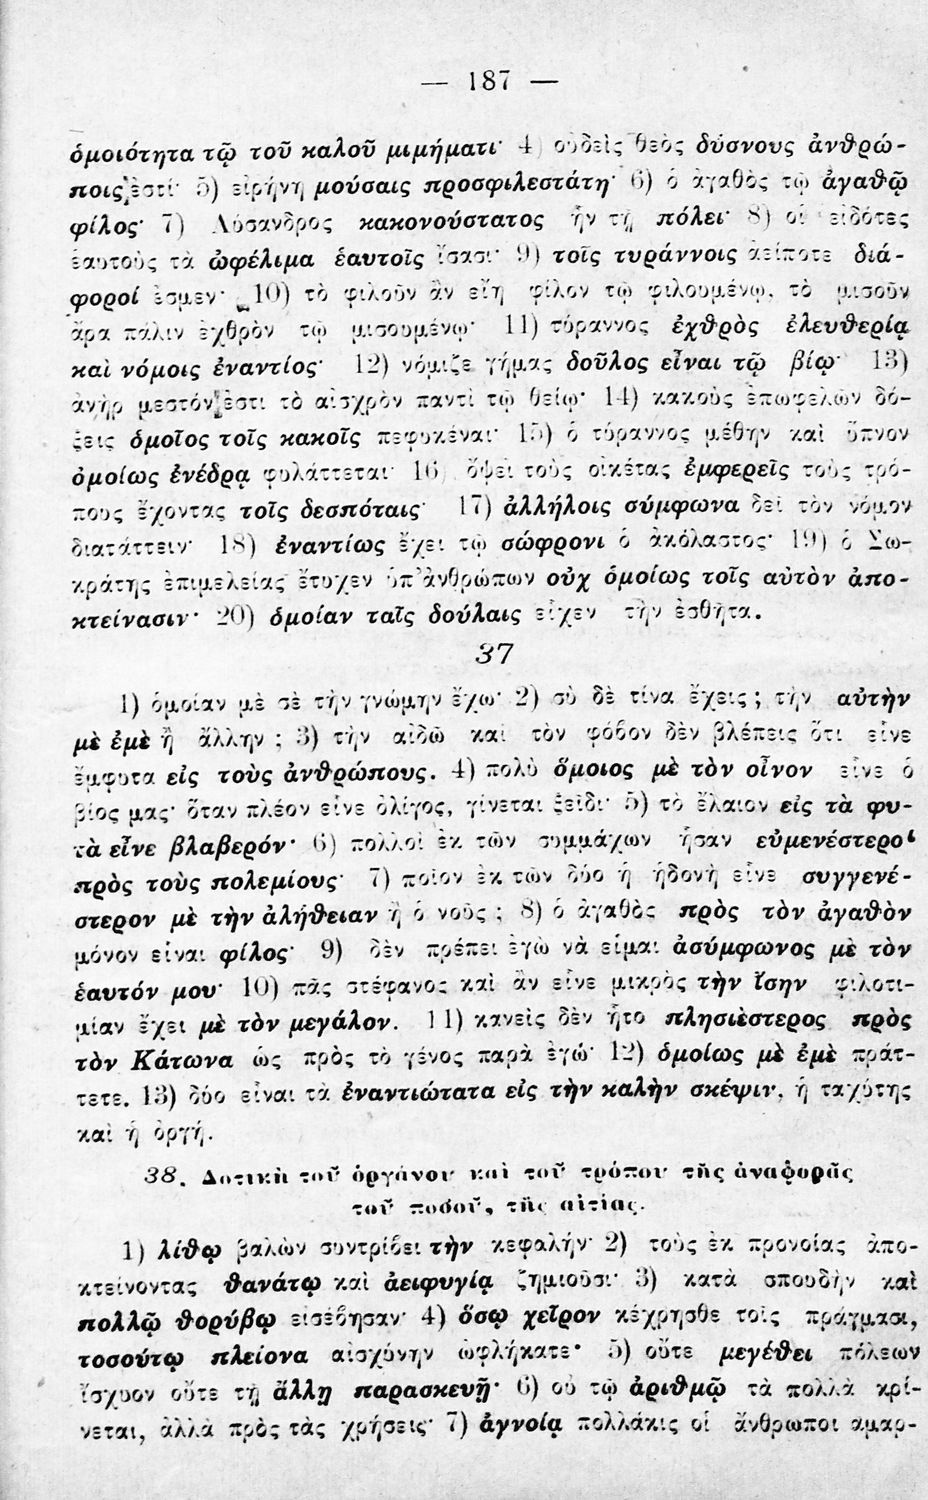 — 187 —
ὁμοιότητα τῷ τοῦ καλοῦ μιμήματι· 4) οὐδεὶς θεὸς δύσνους ἀνθρώ-
ποις ἐστί· 5) εἰρήνη μούσαις προσφιλεστάτη· 6) ὁ ἀγαθὸς τῷ ἀγαθῷ
φίλος· 7) Λύσανδρος κακονούστατος ἦν τῇ πόλει· 8) οἱ εἰδότες
ἑαυτοὺς τὰ ὠφέλιμα ἑαυτοῖς ἴσασι· 9) τοῖς τυράννοις ἀείποτε διά-
φοροί ἐσμεν· 10) τὸ φιλοῦν ἂν εἴη φίλον τῷ φιλουμένῳ, τὸ μισοῦν
ἄρα πάλιν ἐχθρὸν τῷ μισουμένῳ· 11) τύραννος ἐχθρὸς ἐλευθερίᾳ
καὶ νόμοις ἐναντίος· 12) νόμιζε γήμας δοῦλος εἶναι τῷ βίῳ· 13)
ἀνὴρ μεστόν ἐστι τὸ αἰσχρὸν παντὶ τῷ θείῳ· 14) κακοὺς ἐπωφελῶν δό-
ξεις ὁμοῖος τοῖς κακοῖς πεφυκέναι· 15) ὁ τύραννος μέθην καὶ ὕπνον
ὁμοίως ἐνέδρᾳ φυλάττεται· 16) ὄψει τοὺς οἰκέτας ἐμφερεῖς τοὺς τρό-
πους ἔχοντας τοῖς δεσπόταις· 17) ἀλλήλοις σύμφωνα δεῖ τὸν νόμον
διατάττειν· 18) ἐναντίως ἔχει τῷ σώφρονι ὁ ἀκόλαστος· 19) ὁ Σω-
κράτης ἐπιμελείας ἔτυχεν ὑπ' ἀνθρώπων οὐχ ὁμοίως τοῖς αὐτὸν ἀπο-
κτείνασιν· 20) ὁμοίαν ταῖς δούλαις εἶχεν τὴν ἐσθῆτα.
37
1) ὁμοίαν μὲ σὲ τὴν γνώμην ἔχω· 2) σὺ δὲ τίνα ἔχεις ; τὴν αὐτὴν
μὲ ἐμὲ ἢ ἄλλην ; 3) τὴν αἰδῶ καὶ τὸν φόβον δὲν βλέπεις ὅτι εἶνε
ἔμφυτα εἰς τοὺς ἀνθρώπους. 4) πολὺ ὅμοιος μὲ τὸν οἶνον εἶνε ὁ
βίος μας· ὅταν πλέον εἶνε ὀλίγος, γίνεται ξείδι· 5) τὸ ἔλαιον εἰς τὰ φυ-
τὰ εἶνε βλαβερόν· 6) πολλοὶ ἐκ τῶν συμμάχων ἦσαν εὐμενέστεροι
πρὸς τοὺς πολεμίους· 7) ποῖον ἐκ τῶν δύο ἡ ἡδονὴ εἶνε συγγενέ-
στερον μὲ τὴν ἀλήθειαν ἢ ὁ νοῦς ; 8) ὁ ἀγαθὸς πρὸς τὸν ἀγαθὸν
μόνον εἶναι φίλος· 9) δὲν πρέπει ἐγὼ νὰ εἶμαι ἀσύμφωνος μὲ τὸν
ἑαυτόν μου· 10) πᾶς στέφανος καὶ ἂν εἶνε μικρὸς τὴν ἴσην φιλοτι-
μίαν ἔχει μὲ τὸν μεγάλον. 11) κανεὶς δὲν ἦτο πλησιέστερος πρὸς
τὸν Κάτωνα ὡς πρὸς τὸ γένος παρὰ ἐγώ· 12) ὁμοίως μὲ ἐμὲ πράτ-
τετε. 13) δύο εἶναι τὰ ἐναντιώτατα εἰς τὴν καλὴν σκέψιν, ἡ ταχύτης
καὶ ἡ ὀργή.
38. Δοτικὴ τοῦ ὀργάνου καὶ τοῦ τρόπου τῆς ἀναφορᾶς
τοῦ ποσοῦ, τῆς αἰτίας.
1) λίθῳ βαλὼν συντρίβει τὴν κεφαλήν· 2) τοὺς ἐκ προνοίας ἀπο-
κτείνοντας θανάτῳ καὶ ἀειφυγίᾳ ζημιοῦσι· 3) κατὰ σπουδὴν καὶ
πολλῷ θορύβῳ εἰσέβησαν· 4) ὅσῳ χεῖρον κέχρησθε τοῖς πράγμασι,
τοσούτῳ πλείονα αἰσχύνην ὠφλήκατε· 5) οὔτε μεγέθει πόλεων
ἴσχυον οὔτε τῇ ἄλλῃ παρασκευῇ· 6) οὐ τῷ ἀριθμῷ τὰ πολλὰ κρί-
νεται, ἀλλὰ πρὸς τὰς χρήσεις· 7) ἀγνοίᾳ πολλάκις οἱ ἄνθρωποι ἁμαρ-